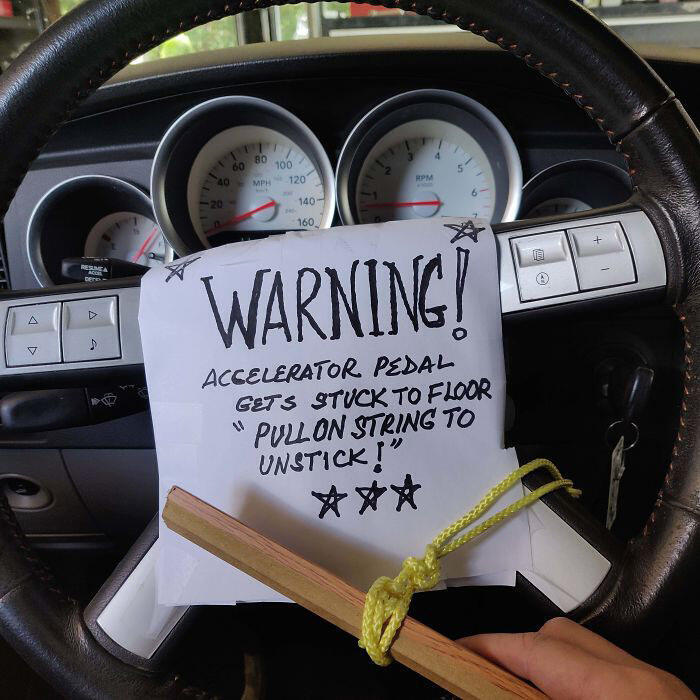 60 80 100
40 MPH 120
20 140
0 160
1 2 3 4 5 6 7
RPM
RESUME
ACCEL
WARNING!
ACCELERATOR PEDAL
GETS STUCK TO FLOOR
" PULL ON STRING TO
UNSTICK!"